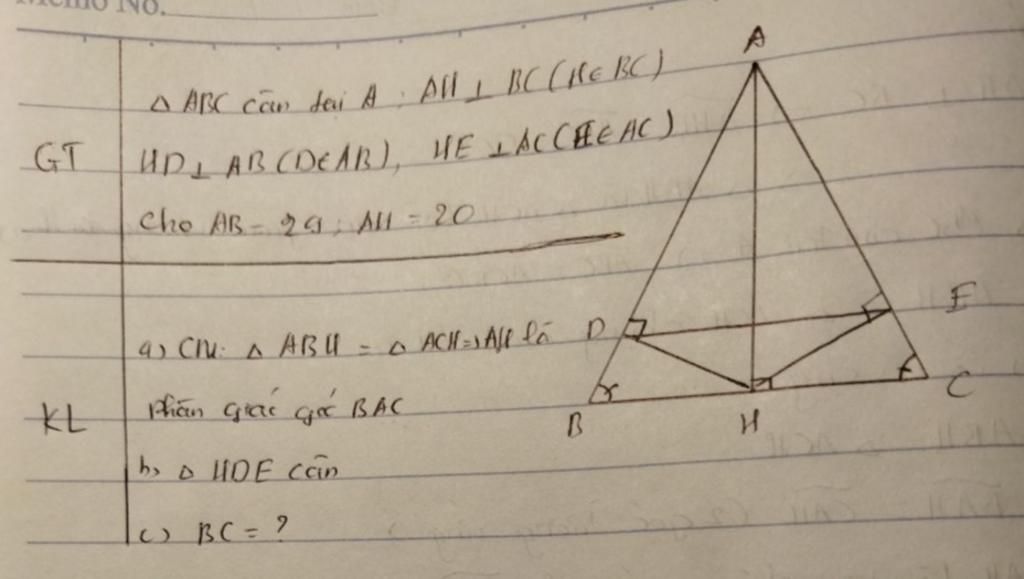 Memo No.
Δ ABC cân tại A ; AH ⊥ BC (H ∈ BC)
GT HD ⊥ AB (D ∈ AB), HE ⊥ AC (E ∈ AC)
Cho AB = 29 ; AH = 20
a) CM: Δ ABH = Δ ACH => AH là
phân giác góc BAC
KL
b) Δ HDE cân
c) BC = ?
A
D E
B H C